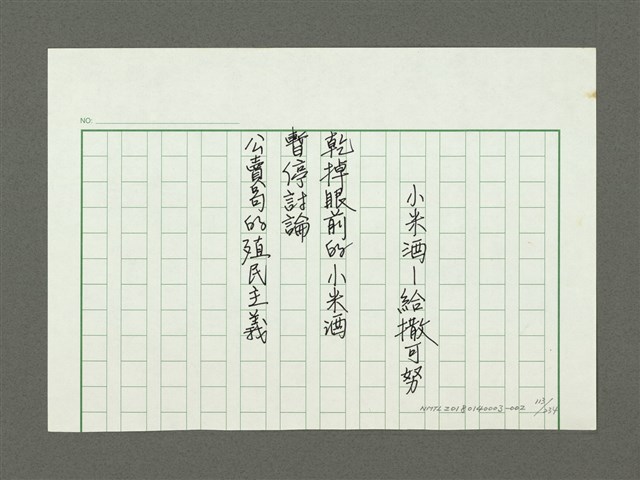 NO:
小米酒—給撒可努
乾掉眼前的小米酒
暫停討論
公賣局的殖民主義
NMTL20180140003-002
113/234